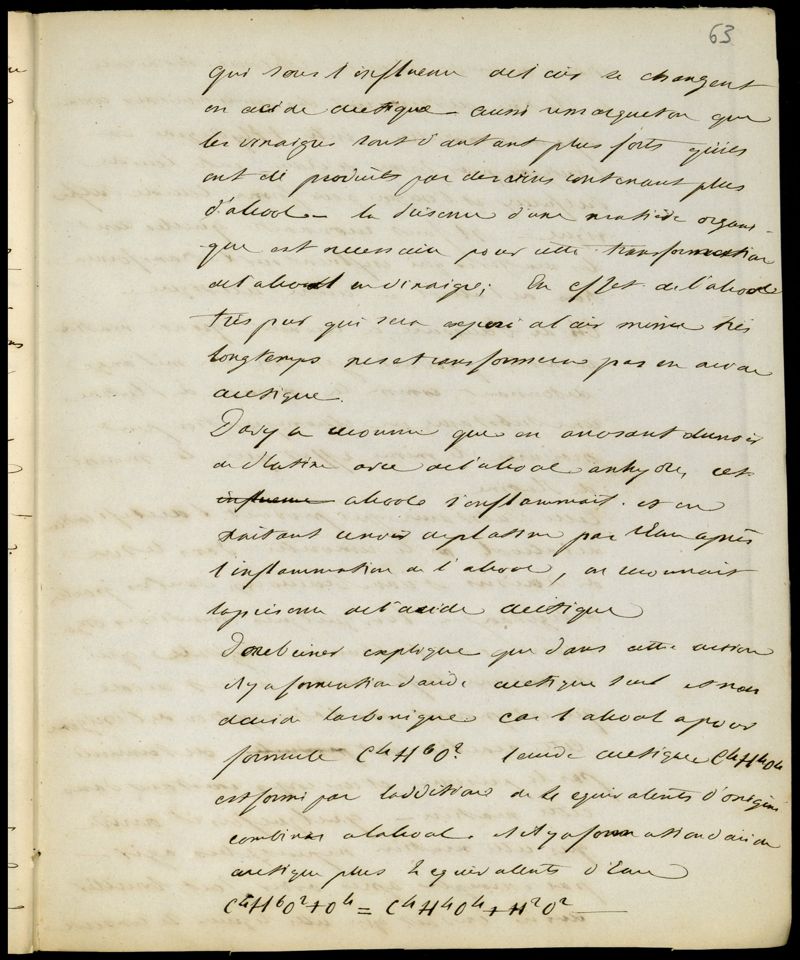 63
qui sous l'influence de l'air se changent
en acide acetique - aussi remarqueton que
les vinaigres sont d'autant plus forts qu'ils
ont été produits par des vins contenant plus
d'alcool - la présence d'une matière organi-
que est necessaire pour cette transformation
de l'alcool en vinaigre; En effet de l'alcool
très pur qui sera exposé al air même très
longtemps ne se transformera pas en acide
acetique.
Davy a reconnu que en arrosant du noir
de Platine avec de l'alcool anhydre, cet
influence alcool s'enflammait. et en
traitant ce noir de platine par l'Eau après
l'inflammation de l'alcool, on reconnait
la présence de l'acide acétique
Doebeiner explique que dans cette action
il y a formation d'acide acetique seul et non
d'acide Carbonique car l'alcool a pour
formule C⁴H⁶O². l'acide acetique C⁴H⁴O⁴
est formé par l'addition de 4 equivalents d'oxigène
combinés a l'alcool. et il y a formation d'acide
acetique plus 2 equivalents d'Eau
C⁴H⁶O²+O⁴ = C⁴H⁴O⁴+H²O²